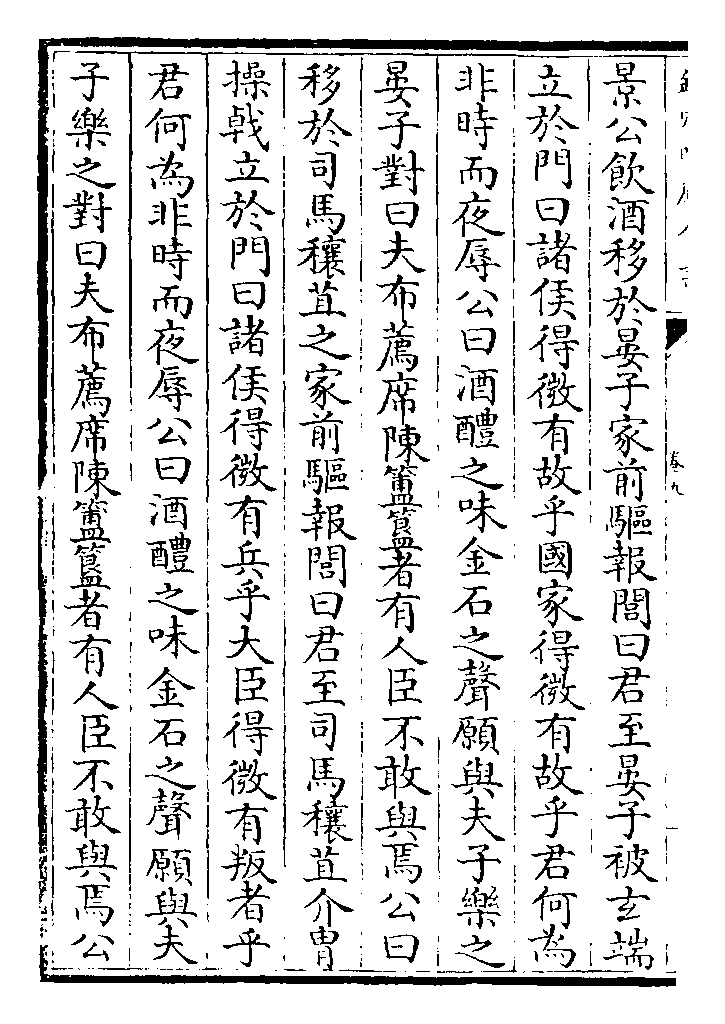 景公飲酒移於晏子家前驅報閭曰君至晏子被玄端
立於門曰諸侯得微有故乎國家得微有故乎君何為
非時而夜辱公曰酒醴之味金石之聲願與夫子樂之
晏子對曰夫布薦席陳簠簋者有人臣不敢與焉公曰
移於司馬穰苴之家前驅報閭曰君至司馬穰苴介胄
操戟立於門曰諸侯得微有兵乎大臣得微有叛者乎
君何為非時而夜辱公曰酒醴之味金石之聲願與夫
子樂之對曰夫布薦席陳簠簋者有人臣不敢與焉公
卷九